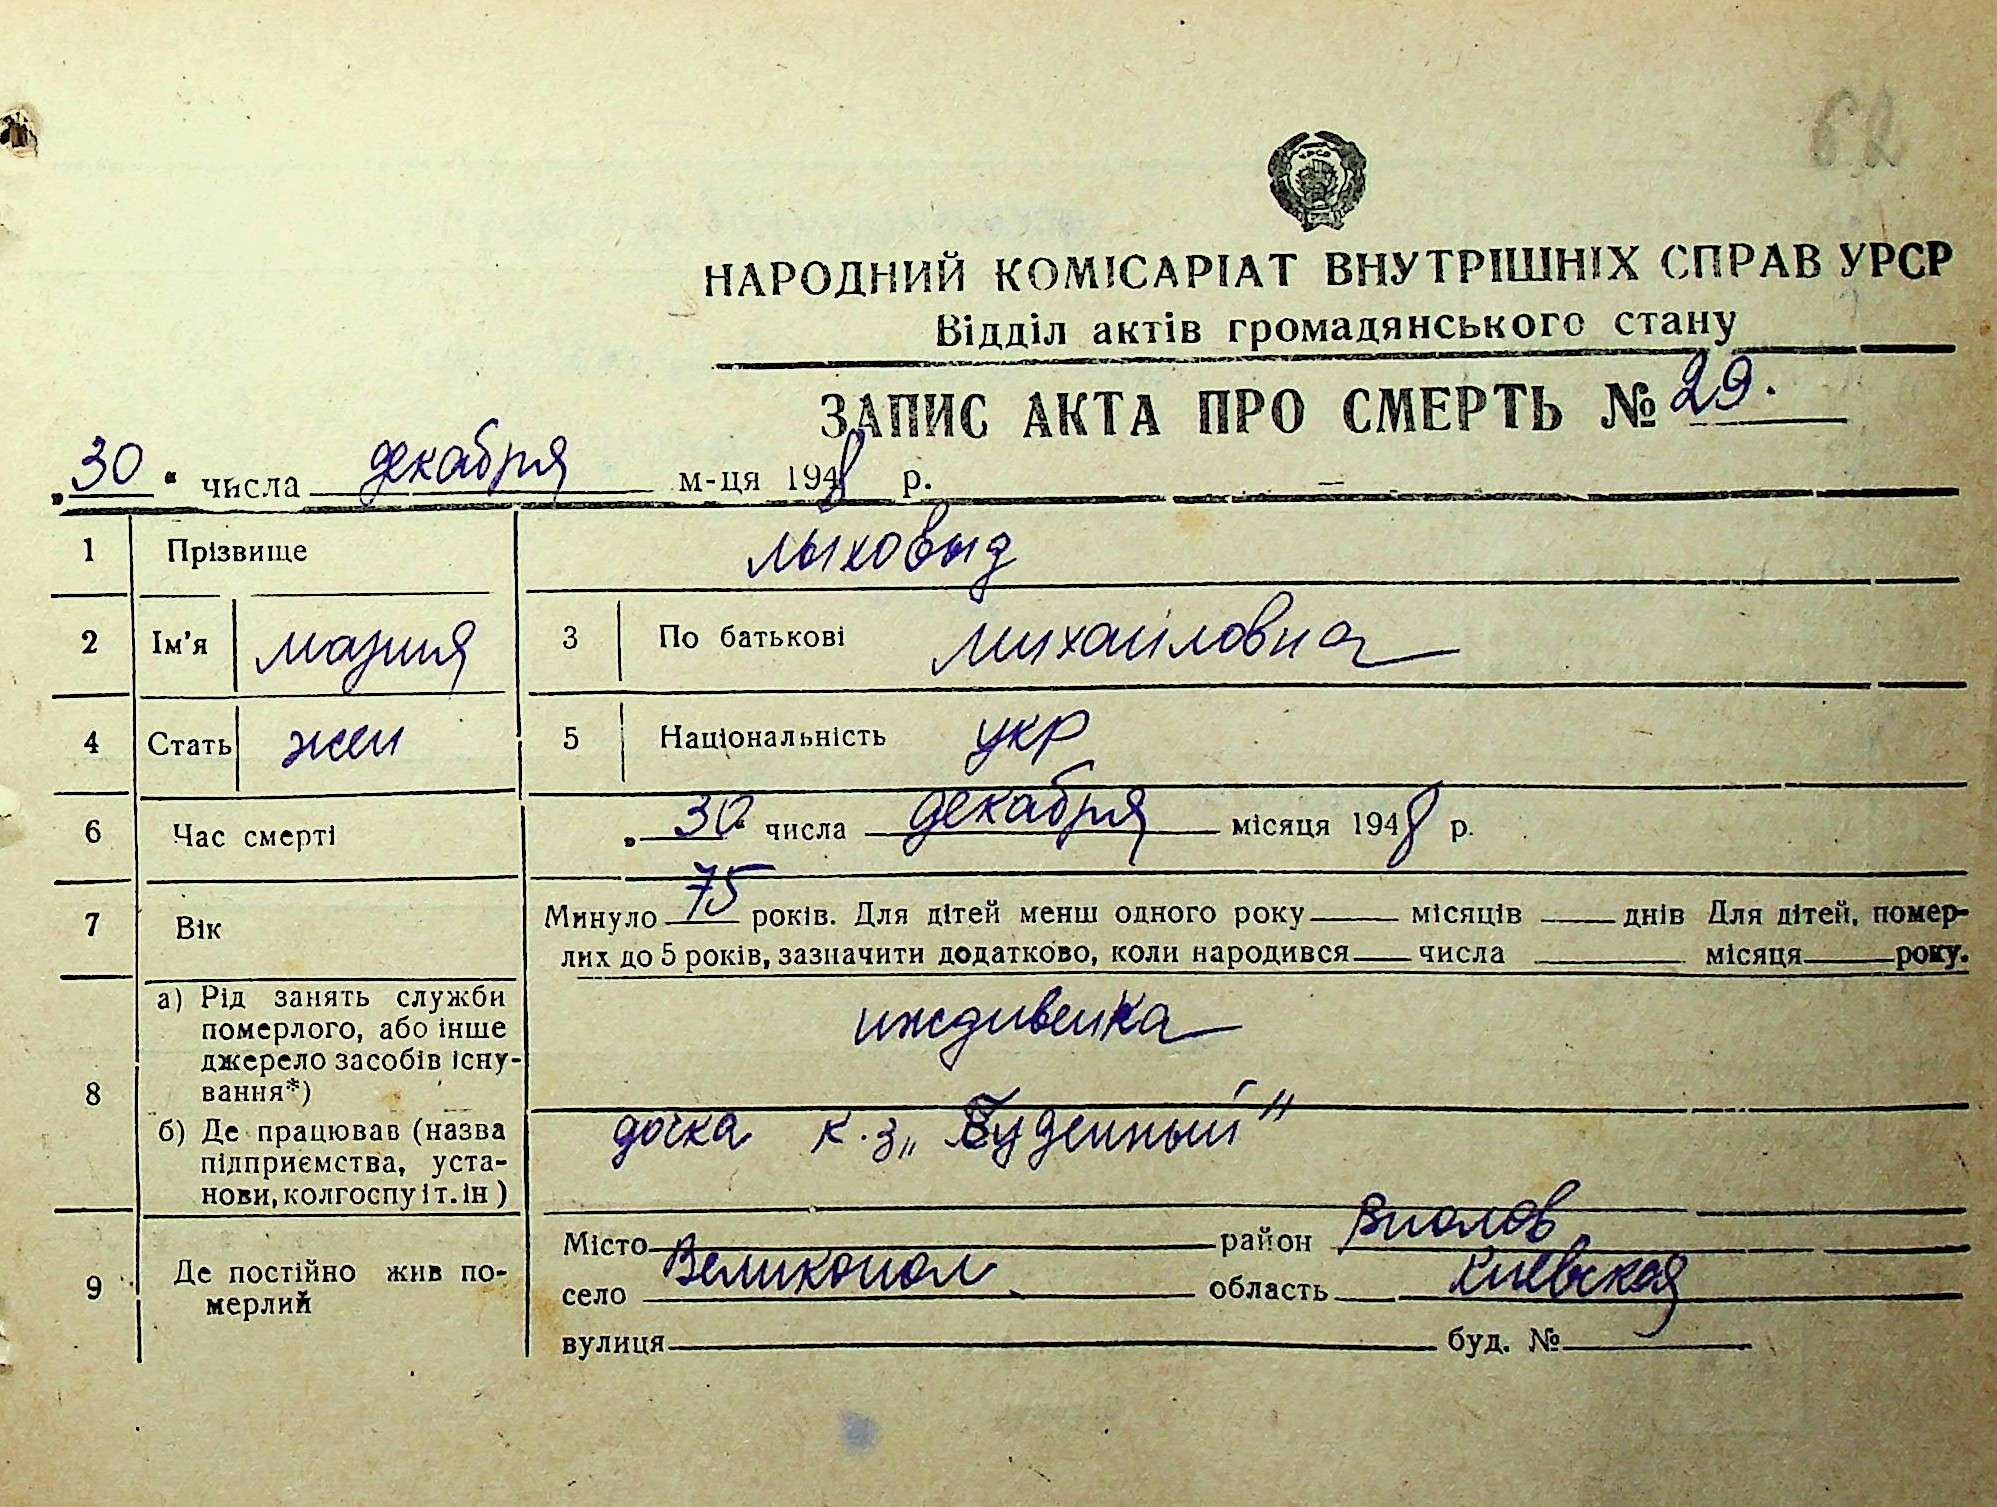 62
УРСР
НАРОДНИЙ КОМІСАРІАТ ВНУТРІШНІХ СПРАВ УРСР
Відділ актів громадянського стану
ЗАПИС АКТА ПРО СМЕРТЬ № 29.
„30“ числа декабря м-ця 1948 р.
1 Прізвище Лыховыд
2 Ім'я Мария 3 По батькові Михайловна
4 Стать жен 5 Національність укр
6 Час смерті „30“ числа декабря місяця 1948 р.
7 Вік Минуло 75 років. Для дітей менш одного року місяців днів Для дітей, помер-
лих до 5 років, зазначити додатково, коли народився числа місяця року.
8 а) Рід занять служби
померлого, або інше
джерело засобів існу-
вання*) иждивенка
б) Де працював (назва
підприємства, уста-
нови, колгоспу і т. ін) дочка к.з „Буденный"
9 Де постійно жив по-
мерлий
Місто район
село Великопол область Киевская
вулиця буд. №